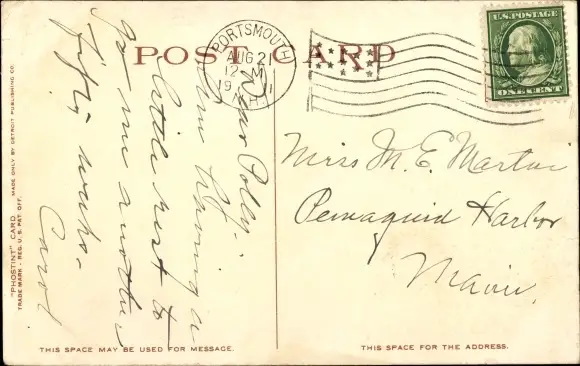 POST CARD
PORTSMOUTH
AUG 21
12 M
N.H.
U.S. POSTAGE
ONE CENT
Dear Polly:
Am having a
little rest to
go on another
fifty weeks.
Carol
Miss M. E. Martin
Pemaquid Harbor
Maine
"PHOSTINT" CARD MADE ONLY BY DETROIT PUBLISHING CO.
TRADE MARK - REG. U.S. PAT. OFF.
THIS SPACE MAY BE USED FOR MESSAGE.
THIS SPACE FOR THE ADDRESS.